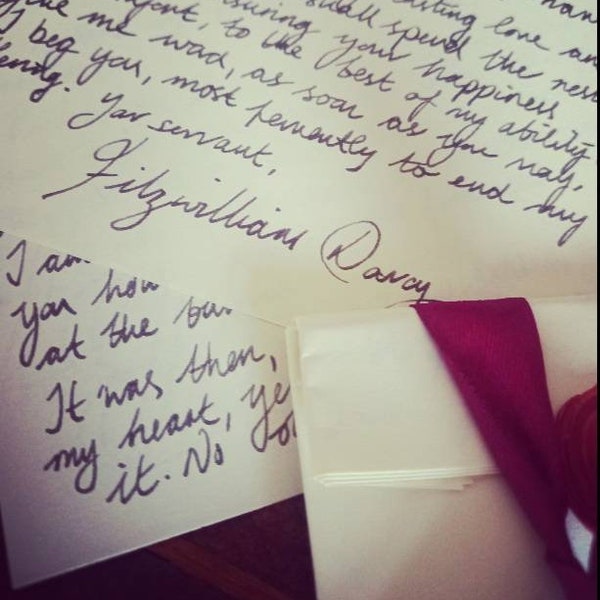 love an
shall spend the rest
suring your happiness
to the best of my ability.
me word, as soon as you may,
I beg you, most fervently to end my
fering.
Your servant,
Fitzwilliam Darcy
I am
you how
at the
It was then,
my heart, ye
it. No